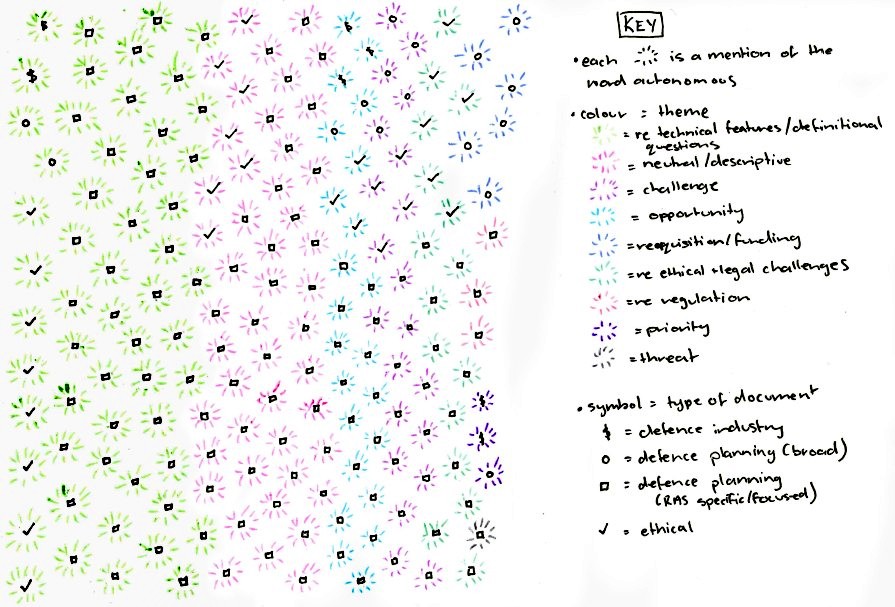 KEY
• each is a mention of the
word autonomous
• colour = theme
= re technical features/definitional
questions
= neutral/descriptive
= challenge
= opportunity
= reaquisition/funding
= re ethical + legal challenges
= re regulation
= priority
= threat
• symbol = type of document
$ = defence industry
o = defence planning (broad)
□ = defence planning
(RAS specific/focused)
✓ = ethical